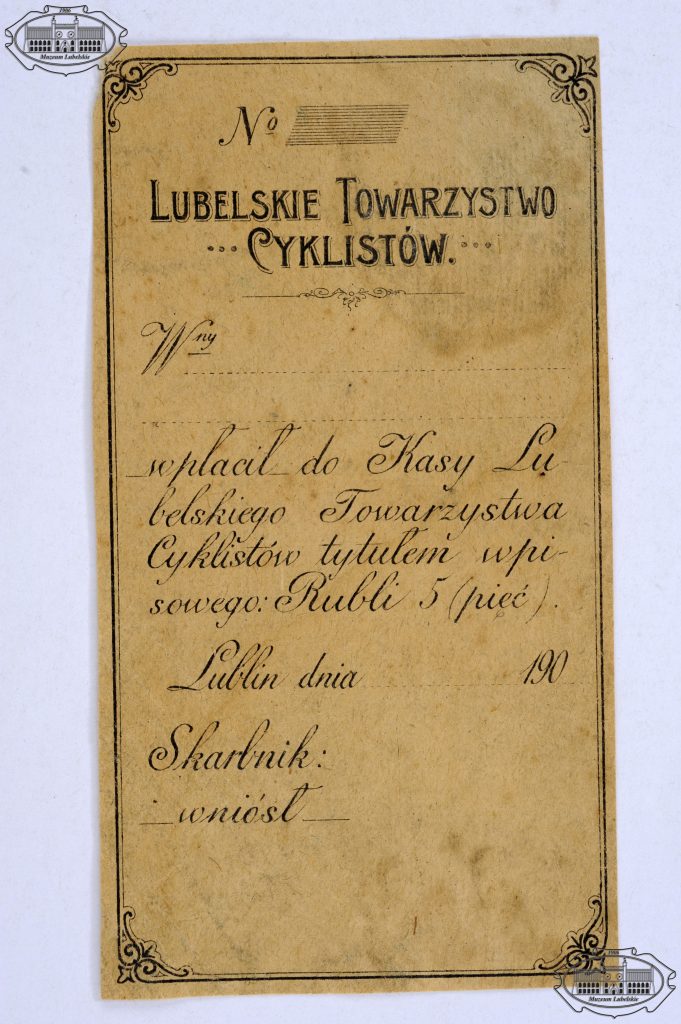 1906
Muzeum Lubelskie
No
LUBELSKIE TOWARZYSTWO
CYKLISTÓW.
Wny
wpłacił do Kasy Lu-
belskiego Towarzystwa
Cyklistów tytułem wpi-
sowego: Rubli 5 (pięć).
Lublin dnia 190
Skarbnik:
wniósł
1906
Muzeum Lubelskie